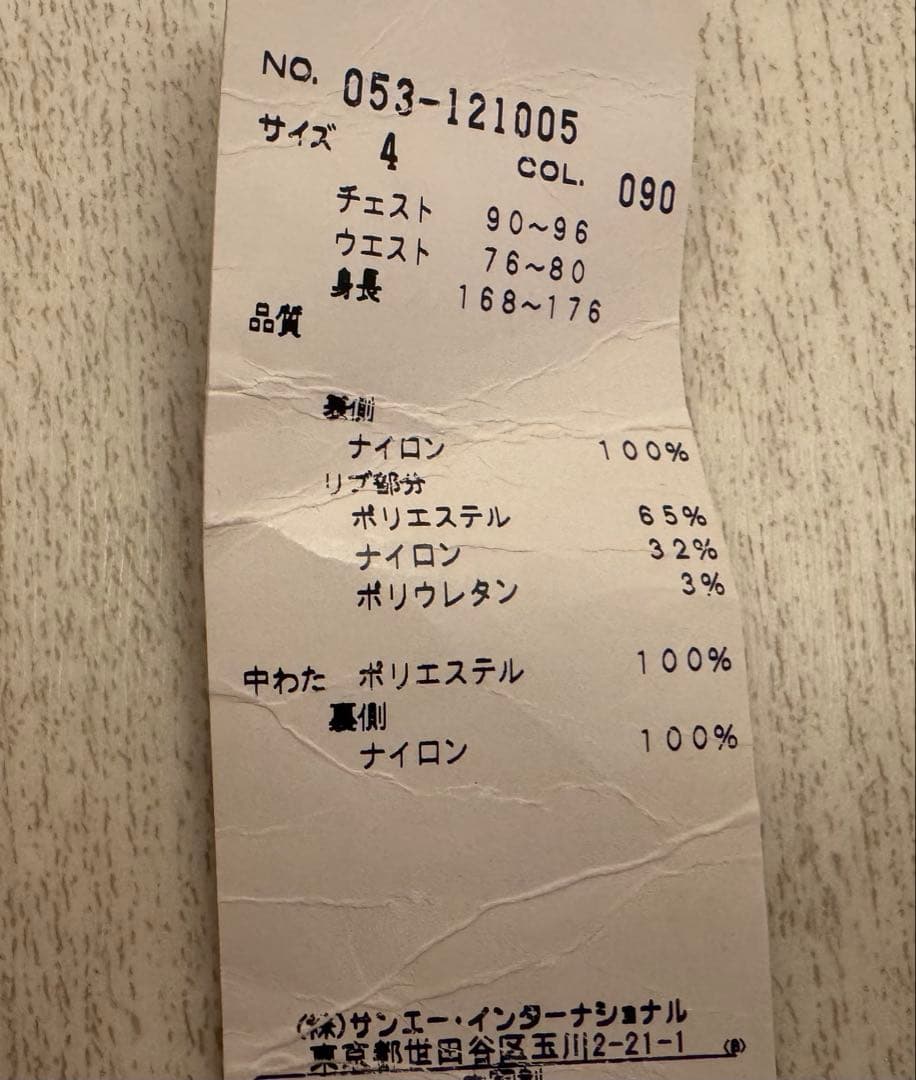 NO. 053-121005
サイズ 4 COL. 090
チェスト 90~96
ウエスト 76~80
身長 168~176
品質
表側
ナイロン 100%
リブ部分
ポリエステル 65%
ナイロン 32%
ポリウレタン 3%
中わた ポリエステル 100%
裏側
ナイロン 100%
(株)サンエー・インターナショナル
東京都世田谷区玉川2-21-1